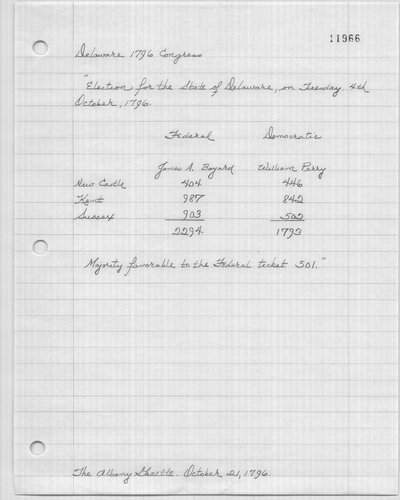 11966
Delaware 1796 Congress
"Election for the State of Delaware, on Tuesday 4th
October, 1796.
Federal Democratic
James A. Bayard William Perry
New Castle 404 446
Kent 987 842
Sussex 903
2294 1793
Majority favorable to the Federal ticket 501."
The Albany Gazette. October 21, 1796.